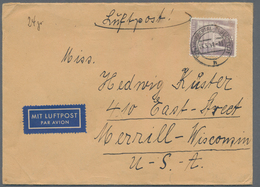 Luftpost!
Miss.
Hedwig Küster
410 East-Street
Merrill-Wisconsin
U-S.A.
MIT LUFTPOST
PAR AVION